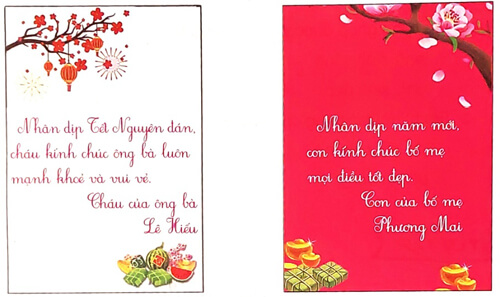 Nhân dịp Tết Nguyên đán,
cháu kính chúc ông bà luôn
mạnh khoẻ và vui vẻ.
Cháu của ông bà
Lê Hiếu
Nhân dịp năm mới,
con kính chúc bố mẹ
mọi điều tốt đẹp.
Con của bố mẹ
Phương Mai